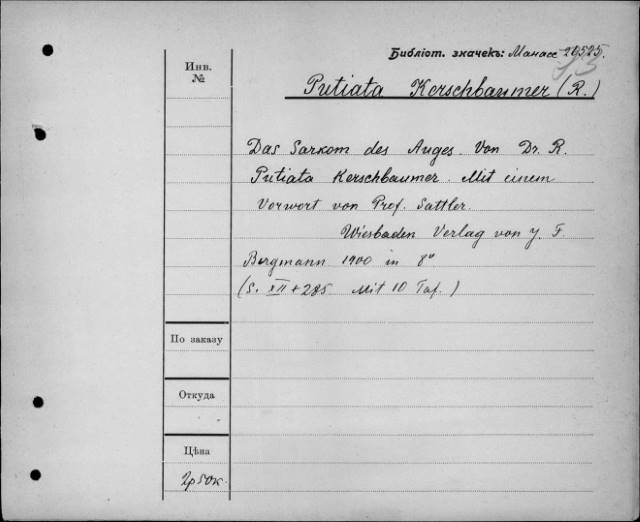 Библіот. значекъ: Манасс 26525.
Инв.
№
Putiata Kerschbaumer (R.)
Das Sarkom des Auges. Von Dr. R.
Putiata Kerschbaumer. Mit einem
Vorwort von Prof. Sattler.
Wiesbaden Verlag von J. F.
Bergmann 1900 in 8°
(S. XII + 285 Mit 10 Taf.)
По заказу
Откуда
Цѣна
2р 50к